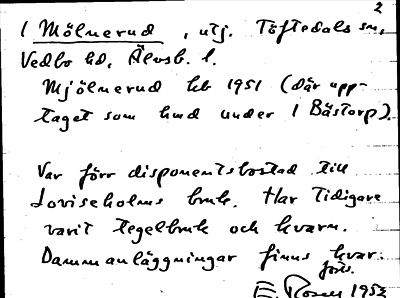 2
1 Mölnerud, utj. Töftedals sn,
Vedbo hd, Älvsb. l.
Mjölnerud kb 1951 (där upp-
taget som hmd under 1 Bästorp).
Var förr disponentsbostad till
Loviseholms bruk. Har tidigare
varit tegelbruk och kvarn.
Dammanläggningar finns kvar.
förs.
E. Rosen 1952